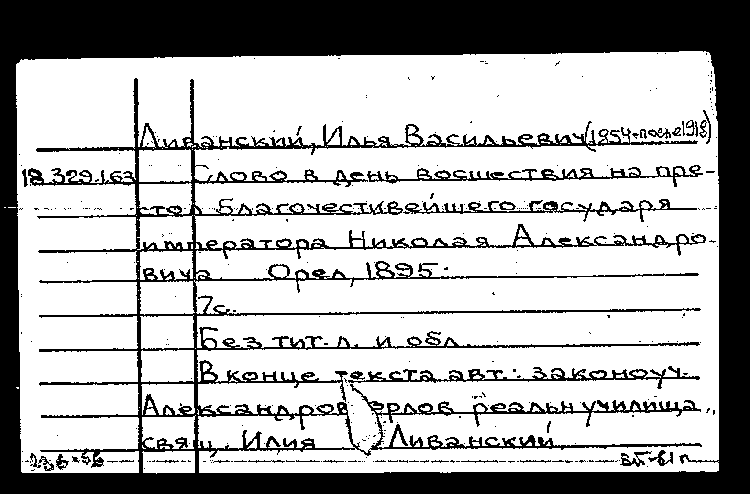 Ливанский, Илья Васильевич (1854-после 1918)
18.329.163 Слово в день восшествия на пре-
стол благочестивейшего государя
императора Николая Александро-
вича. Орел, 1895.
7с.
Без тит. л. и обл.
В конце текста авт.: законоуч.
Александров орлов реальн училища,
свящ. Илия Ливанский.
вп-61 п